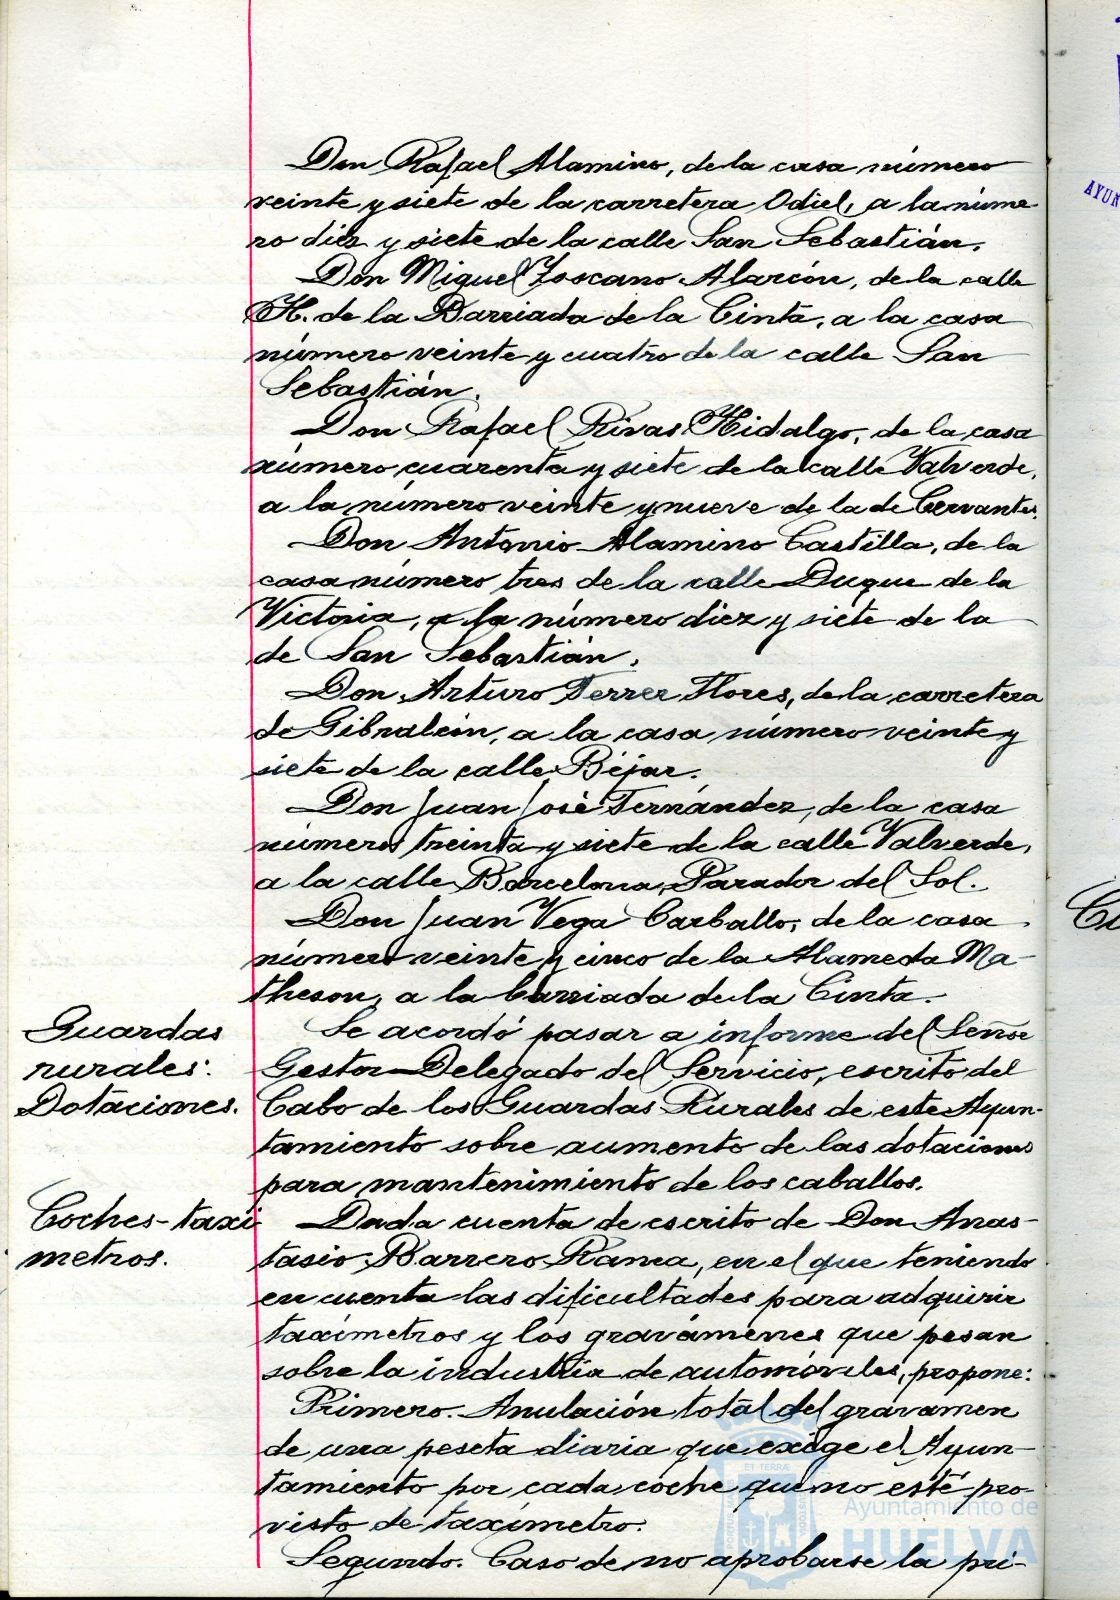 Don Rafael Alamino, de la casa número
veinte y siete de la carretera Odiel, a la núme-
ro diez y siete de la calle San Sebastián.
Don Miguel Toscano Alarcón, de la calle
H. de la Barriada de la Cinta, a la casa
número veinte y cuatro de la calle San
Sebastián.
Don Rafael Rivas Hidalgo, de la casa
número cuarenta y siete de la calle Valverde,
a la número veinte y nueve de la de Cervantes.
Don Antonio Alamino Castilla, de la
casa número tres de la calle Duque de la
Victoria, a la número diez y siete de la
de San Sebastián.
Don Arturo Ferrer Flores, de la carretera
de Gibraleón, a la casa número veinte y
siete de la calle Béjar.
Don Juan José Fernández, de la casa
número treinta y siete de la calle Valverde,
a la calle Barcelona, Parador del Sol.
Don Juan Vega Carballo, de la casa
número veinte y cinco de la Alameda Ma-
theson, a la barriada de la Cinta.
Guardas
rurales.
Dotaciones.
Se acordó pasar a informe del Señor
Gestor Delegado del Servicio, escrito del
Cabo de los Guardas Rurales de este Ayun-
tamiento sobre aumento de las dotaciones
para mantenimiento de los caballos.
Coches-taxi
metros.
Dada cuenta de escrito de Don Anas-
tasio Barrero Ramea, en el que teniendo
en cuenta las dificultades para adquirir
taxímetros y los gravámenes que pesan
sobre la industria de automóviles, propone:
Primero. Anulación total del gravamen
de una peseta diaria que exige el Ayun-
tamiento por cada coche que no esté pro-
visto de taxímetro.
Segundo. Caso de no aprobarse la pri-
AYUN
Ayuntamiento de
HUELVA